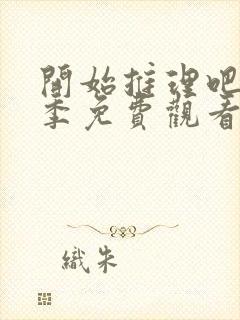 開始推理吧
季免費觀看
織朱